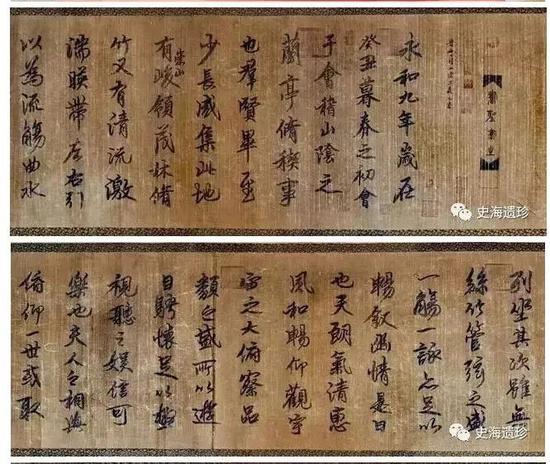 永和九年歲在
癸丑暮春之初會
于會稽山陰之
蘭亭脩稧事
也羣賢畢至
少長咸集此地
崇山
有峻領茂林脩
竹又有清流激
湍暎帶左右引
以為流觴曲水
史海遗珍
列坐其次雖無
絲竹管弦之盛
一觴一詠亦足以
暢敘幽情是日
也天朗氣清惠
風和暢仰觀宇
宙之大俯察品
類之盛所以遊
目騁懷足以極
視聽之娛信可
樂也夫人之相與
俯仰一世或取
史海遗珍